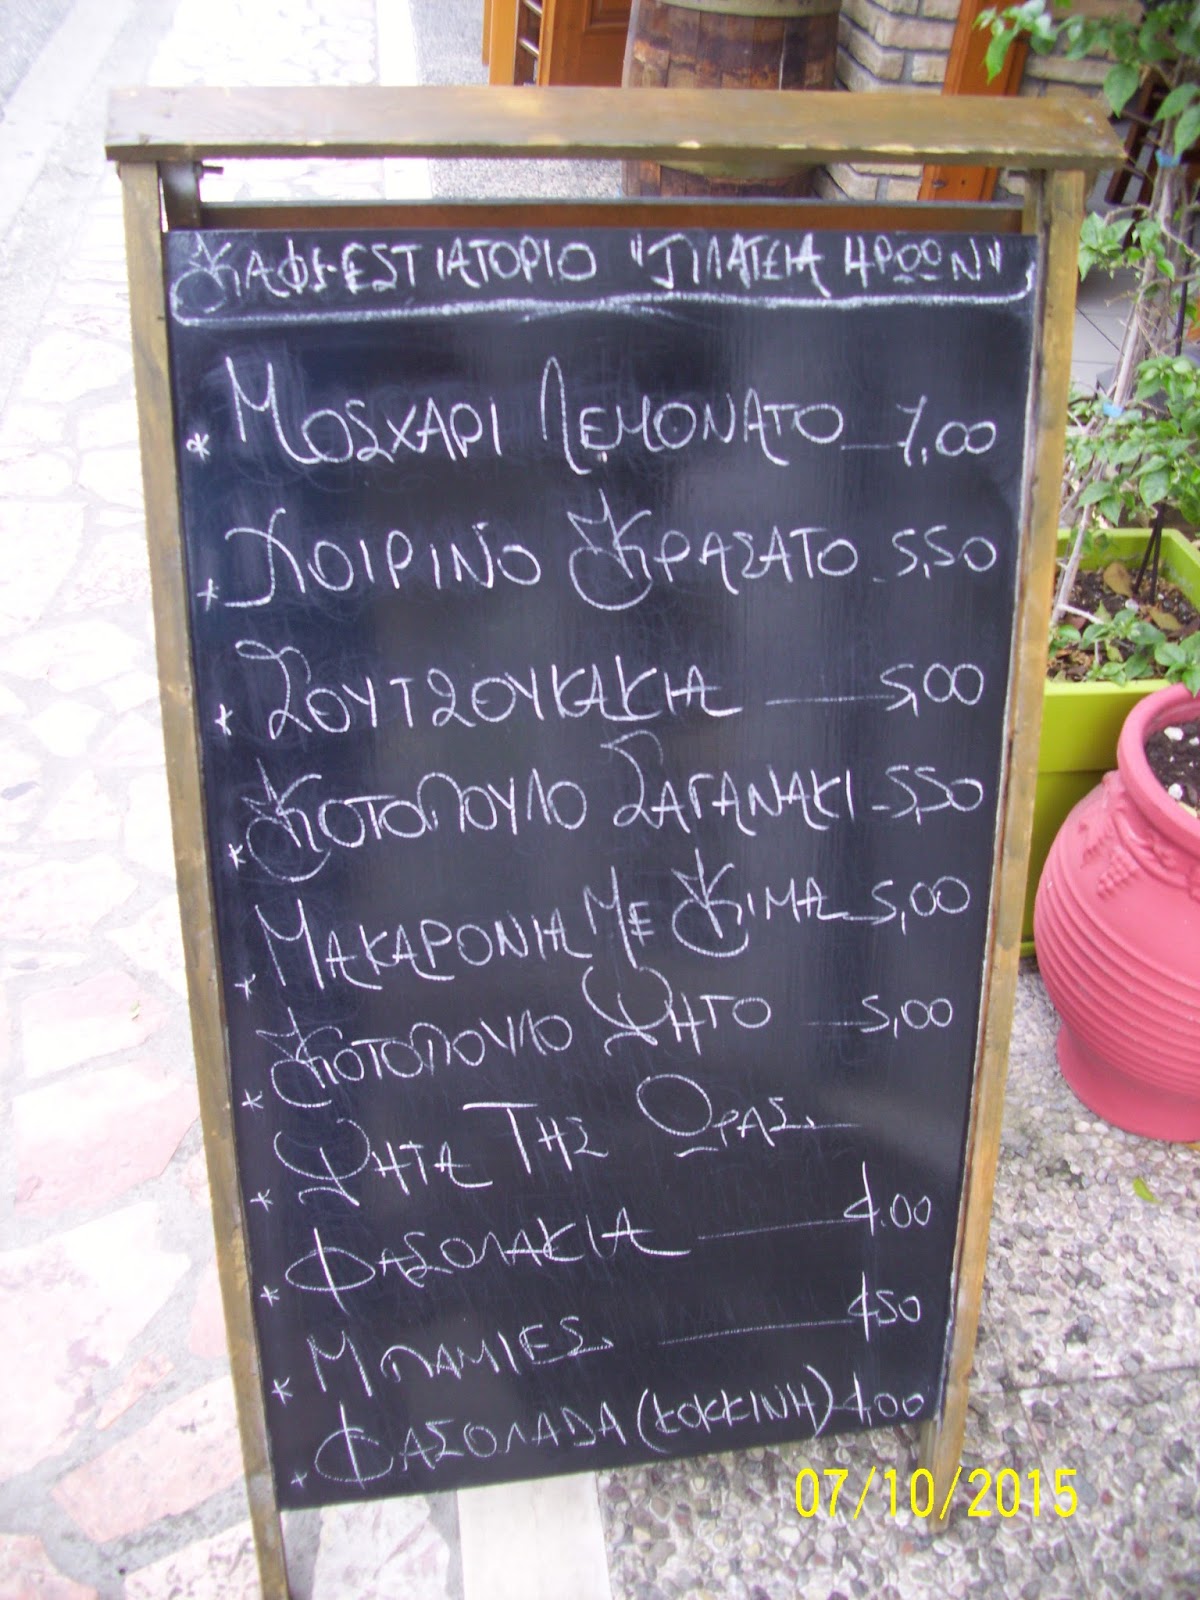 ΚΑΦΕ-ΕΣΤΙΑΤΟΡΙΟ "ΠΛΑΤΕΙΑ ΗΡΩΩΝ"
* ΜΟΣΧΑΡΙ ΛΕΜΟΝΑΤΟ 7,00
* ΧΟΙΡΙΝΟ ΚΡΑΣΑΤΟ - 5,50
* ΣΟΥΤΖΟΥΚΑΚΙΑ — 5,00
* ΚΟΤΟΠΟΥΛΟ ΣΑΓΑΝΑΚΙ - 5,50
* ΜΑΚΑΡΟΝΙΑ ΜΕ ΚΙΜΑ 5,00
* ΚΟΤΟΠΟΥΛΟ ΨΗΤΟ — 5,00
* ΨΗΤΑ ΤΗΣ ΩΡΑΣ
* ΦΑΣΟΛΑΚΙΑ — 4.00
* ΜΠΑΜΙΕΣ — 4,50
* ΦΑΣΟΛΑΔΑ (ΚΟΚΚΙΝΗ) 4,00
07/10/2015